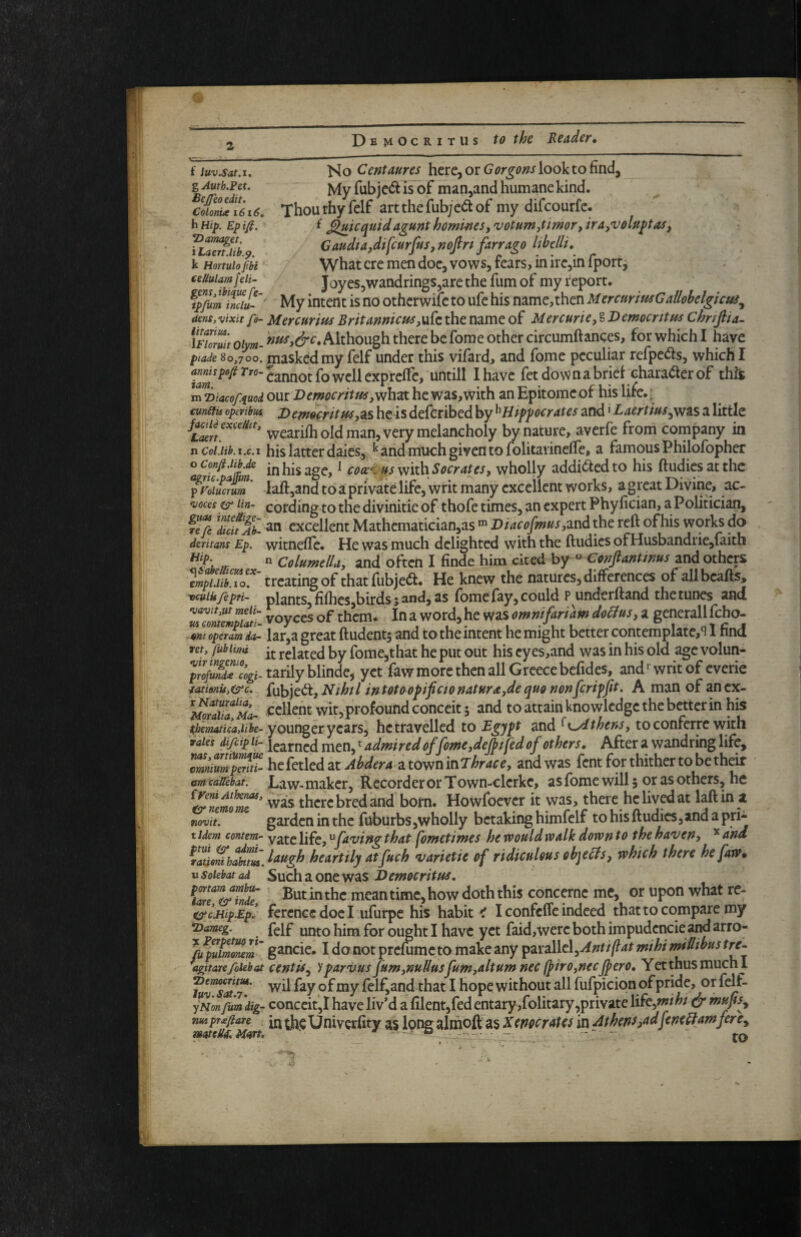 2
Democritus to the Reader.
No Centaures here, or Gorgons look to find,
My subject is of man, and humane kind.
Thou thy self art the subject of my discourse.
f Quicquid agunt homines, votum, timor, ira, voluptas,
Gaudia, discursus, nostri farrago libelli.
What ere men doe, vows, fears, in ire, in sport,
Joyes, wandrings, are the sum of my report.
My intent is no otherwise to use his name, then Mercurius Gallobelgicus,
Mercurius Britannicus, use the name of Mercurie, g Democritus Christia-
nus, &c. Although there be some other circumstances, for which I have
masked my self under this visard, and some peculiar respects, which I
cannot so well expresse, untill I have set down a brief character of this
our Democritus, what he was, with an Epitome of his life.
Democritus, as he is described by h Hippocrates and i Laertius, was a little
wearish old man, very melancholy by nature, averse from company in
his latter daies, k and much given to solitarinesse, a famous Philosopher
in his age, l coævus with Socrates, wholly addicted to his studies at the
last, and to a private life, writ many excellent works, a great Divine, ac-
cording to the divinitie of those times, an expert Physician, a Politician,
an excellent Mathematician, as m Diacosmus, and the rest of his works do
witnesse. He was much delighted with the studies of Husbandrie, saith
n Columella, and often I finde him cited by o Constantinus and others
treating of that subject. He knew the natures, differences of all beasts,
plants, fishes, birds; and, as some say, could p understand the tunes and
voyces of them. In a word, he was omnifariam doctus, a generall scho-
lar, a great student; and to the intent he might better contemplate, q I find
it related by some, that he put out his eyes, and was in his old age volun-
tarily blinde, yet saw more then all Greece besides, and r writ of everie
subject, Nihil in toto opificio naturæ, de quo non scripsit. A man of an ex-
cellent wit, profound conceit; and to attain knowledge the better in his
younger years, he travelled to Egypt and s Athens, to conferre with
learned men, t admired of some, despised of others. After a wandring life,
he setled at Abdera a town in Thrace, and was sent for thither to be their
Law-maker, Recorder or Town-clerke, as some will; or as others, he
was there bred and born. Howsoever it was, there he lived at last in a
garden in the suburbs, wholly betaking himself to his studies, and a pri-
vate life, u saving that sometimes he would walk down to the haven, x and
laugh heartily at such varietie of ridiculous objects, which there he saw.
Such a one was Democritus.
But in the mean time, how doth this concerne me, or upon what re-
ference doe I usurpe his habit? I confesse indeed that to compare my
self unto him for ought I have yet said, were both impudencie and arro-
gancie. I do not presume to make any parallel, Antistat mihi millibus tre-
centis, y parvus sum, nullus sum, altum nec spiro, nec spero. Yet thus much I
wil say of my self, and that I hope without all suspicion of pride, or self-
conceit, I have liv'd a silent, sedentary, solitary, private life, mihi & musis,
in the University as long almost as Xenocrates in Athens, ad senectam fere,
to
f Iuv. Sat. 1.
g Auth. Pet.
Besseo edit.
Coloniæ 1616.
h Hip. Epist.
Damaget.
i Laert. lib. 9.
k Hortulo sibi
cellulam seli-
gens, ibique se-
ipsum inclu-
dens, vixit so-
litarius.
l Floruit Olym-
piade 80, 700.
annis post Tro-
iam.
m Diacos. quod
cunctis operibus
facilè excellit,
Laert.
n Col. lib. 1. c. 1
o Const. lib. de
agric. passim.
p Volucrum
voces & lin-
guas intellige-
re se dicit Ab-
deritans Ep.
Hip.
q Sabellicus ex-
empl. lib. 10.
oculis se pri-
vavit, ut meli-
us contemplati-
oni operam da-
ret, sublimi
vir ingenio,
profundæ cogi-
tationis, &c.
r Naturalia,
Moralia, Ma-
thematica, libe-
rales discipli-
nas, artiumque
omnium periti-
am callebat.
s Veni Athenas,
& nemo me
novit.
t Idem contem-
ptui & admi-
rationi habitus.
u Solebat ad
portam ambu-
lare, & inde,
&c. Hip. Ep.
Dameg.
x Perpetuo ri-
su pulmonem
agitare solebat
Democritus.
Iuv. Sat. 7.
y Non sum dig-
nus præstare
matellâ. Mart.